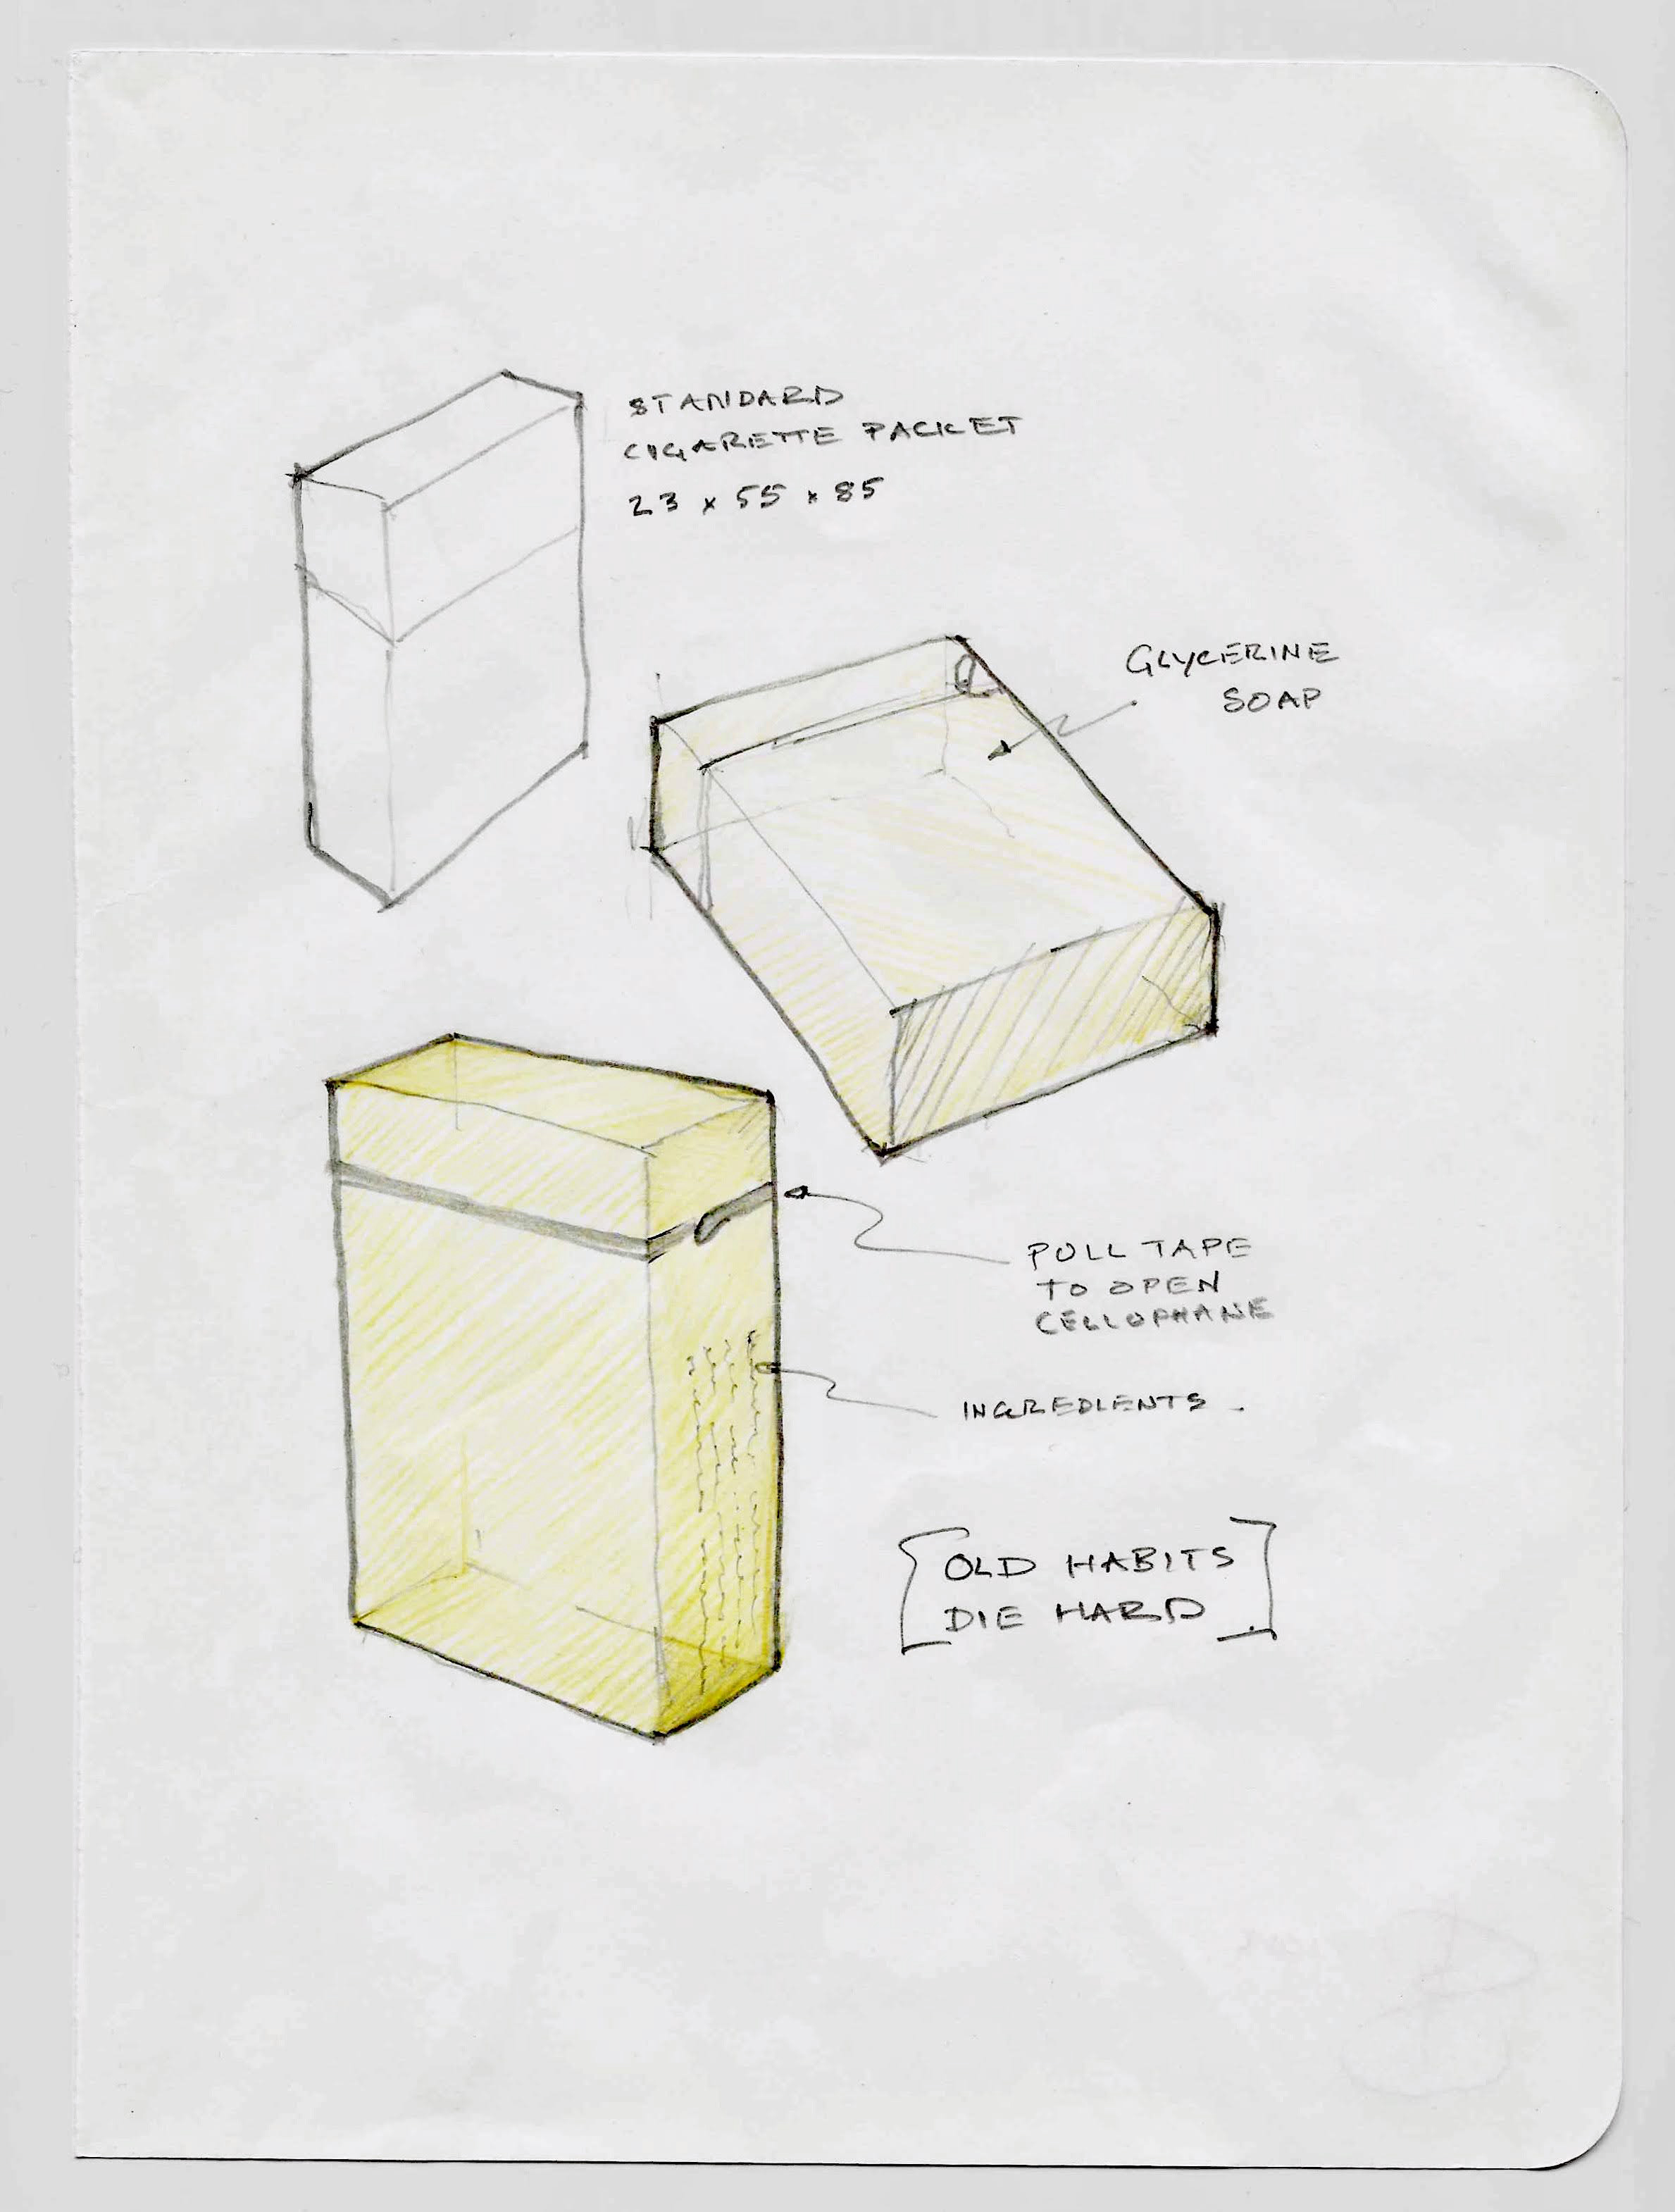 STANDARD
CIGARETTE PACKET
23 x 55 x 85
GLYCERINE
SOAP
PULL TAPE
TO OPEN
CELLOPHANE
INGREDIENTS.
[OLD HABITS
DIE HARD]